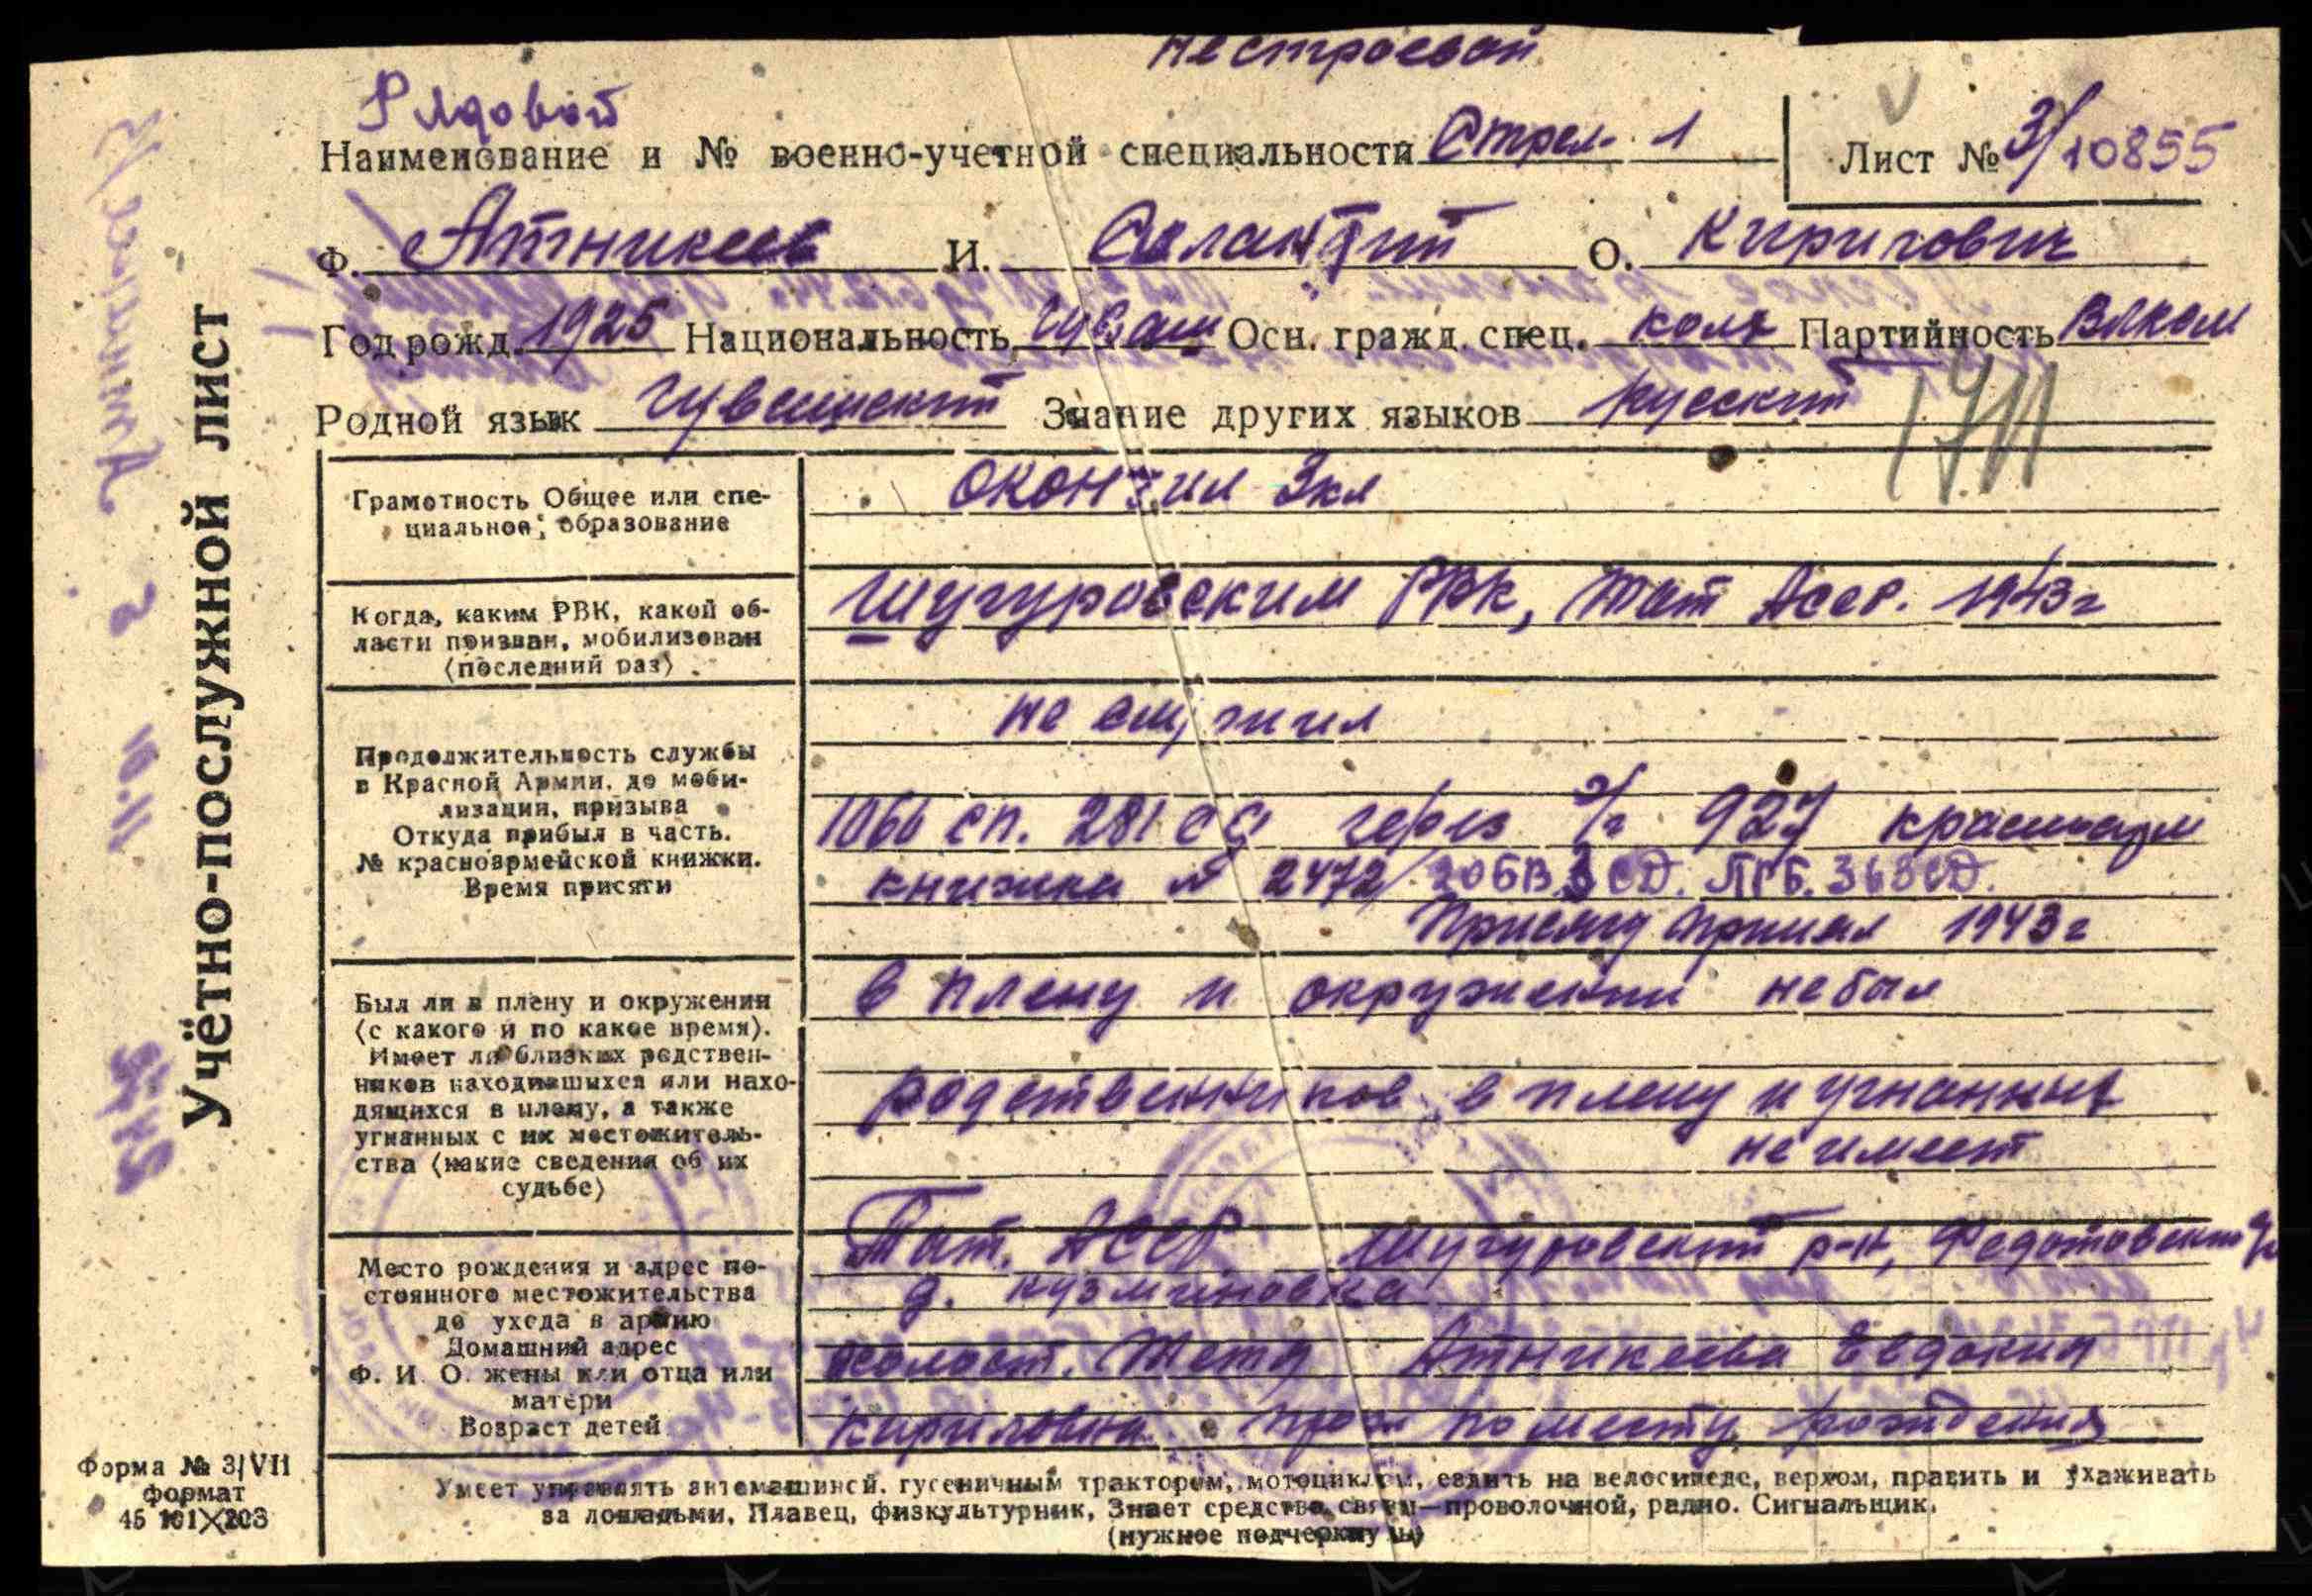 нестроевой
Рядовой
Наименование и № военно-учетной специальности Стрел. 1
Лист № 3/10855
Ф. Атникеев И. О. Кирилович
Год рожд. 1925 Национальность чуваш Осн. гражд. спец. колх Партийность Влксм
Родной язык чувашский Знание других языков русский
1711
Учётно-послужной лист
Грамотность Общее или спе-
циальное, образование
окончил 3кл
Когда, каким РВК, какой об-
ласти призван, мобилизован
(последний раз)
Шугуровским РВК, Тат Асср. 1943г
Продолжительность службы
в Красной Армии, до моби-
лизации, призыва
Откуда прибыл в часть.
№ красноармейской книжки.
Время присяги
не служил
1066 сп. 281 сд через э/г 927 красноарм
книжка № 2472 206В3СД. ЛГБ. 363СД.
Присягу принял 1943г
Был ли в плену и окружении
(с какого и по какое время).
Имеет ли близких родствен-
ников находившихся или нахо-
дящихся в плену, а также
угнанных с их местожитель-
ства (какие сведения об их
судьбе)
в плену и окружении не был
родственников в плену и угнанных
не имеет
Место рождения и адрес по-
стоянного местожительства
до ухода в армию
Домашний адрес
Ф. И. О. жены или отца или
матери
Возраст детей
Тат. АССР Шугуровский р-н, Федотовский
д. кузминовка
холост. Тетя Атникеева Евдокия
Кириловна. прож по месту рождения
Форма № 3/VII
формат
45 101×203
Умеет управлять автомашиной, гусеничным трактором, мотоциклом, ездить на велосипеде, верхом, править и ухаживать
за лошадьми, Плавец, физкультурник, Знает средства связи—проволочной, радио. Сигнальщик.
(нужное подчеркнуть)